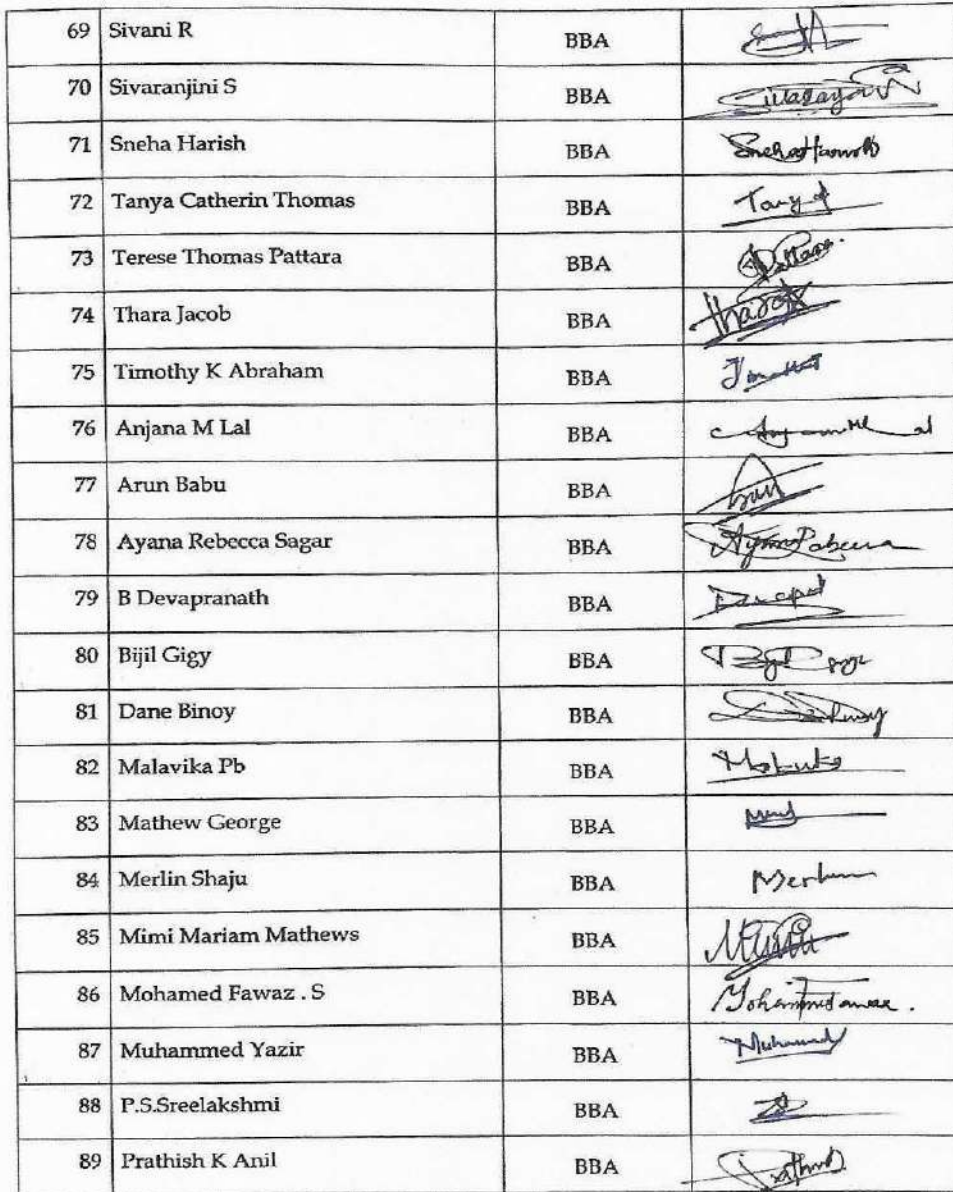 69 Sivani R BBA
70 Sivaranjini S BBA
71 Sneha Harish BBA
72 Tanya Catherin Thomas BBA
73 Terese Thomas Pattara BBA
74 Thara Jacob BBA
75 Timothy K Abraham BBA
76 Anjana M Lal BBA
77 Arun Babu BBA
78 Ayana Rebecca Sagar BBA
79 B Devapranath BBA
80 Bijil Gigy BBA
81 Dane Binoy BBA
82 Malavika Pb BBA
83 Mathew George BBA
84 Merlin Shaju BBA
85 Mimi Mariam Mathews BBA
86 Mohamed Fawaz . S BBA
87 Muhammed Yazir BBA
88 P.S.Sreelakshmi BBA
89 Prathish K Anil BBA